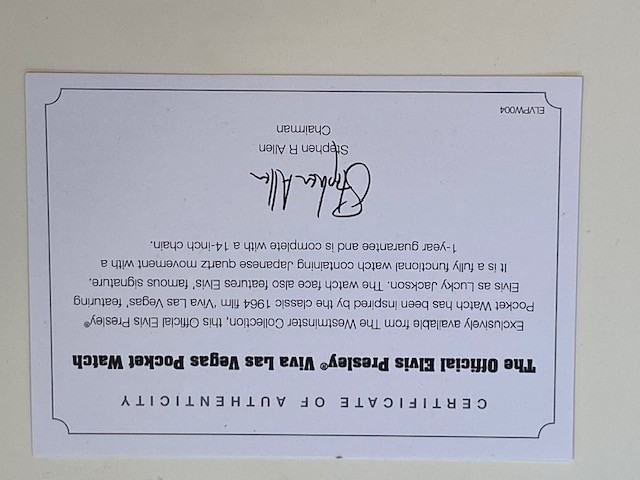 CERTIFICATE OF AUTHENTICITY
The Official Elvis Presley® Viva Las Vegas Pocket Watch
Exclusively available from The Westminster Collection, this Official Elvis Presley®
Pocket Watch has been inspired by the classic 1964 film 'Viva Las Vegas' featuring
Elvis as Lucky Jackson. The watch face also features Elvis' famous signature.
It is a fully functional watch containing Japanese quartz movement with a
1-year guarantee and is complete with a 14-inch chain.
Stephen Allen
Stephen R Allen
Chairman
ELVPW004